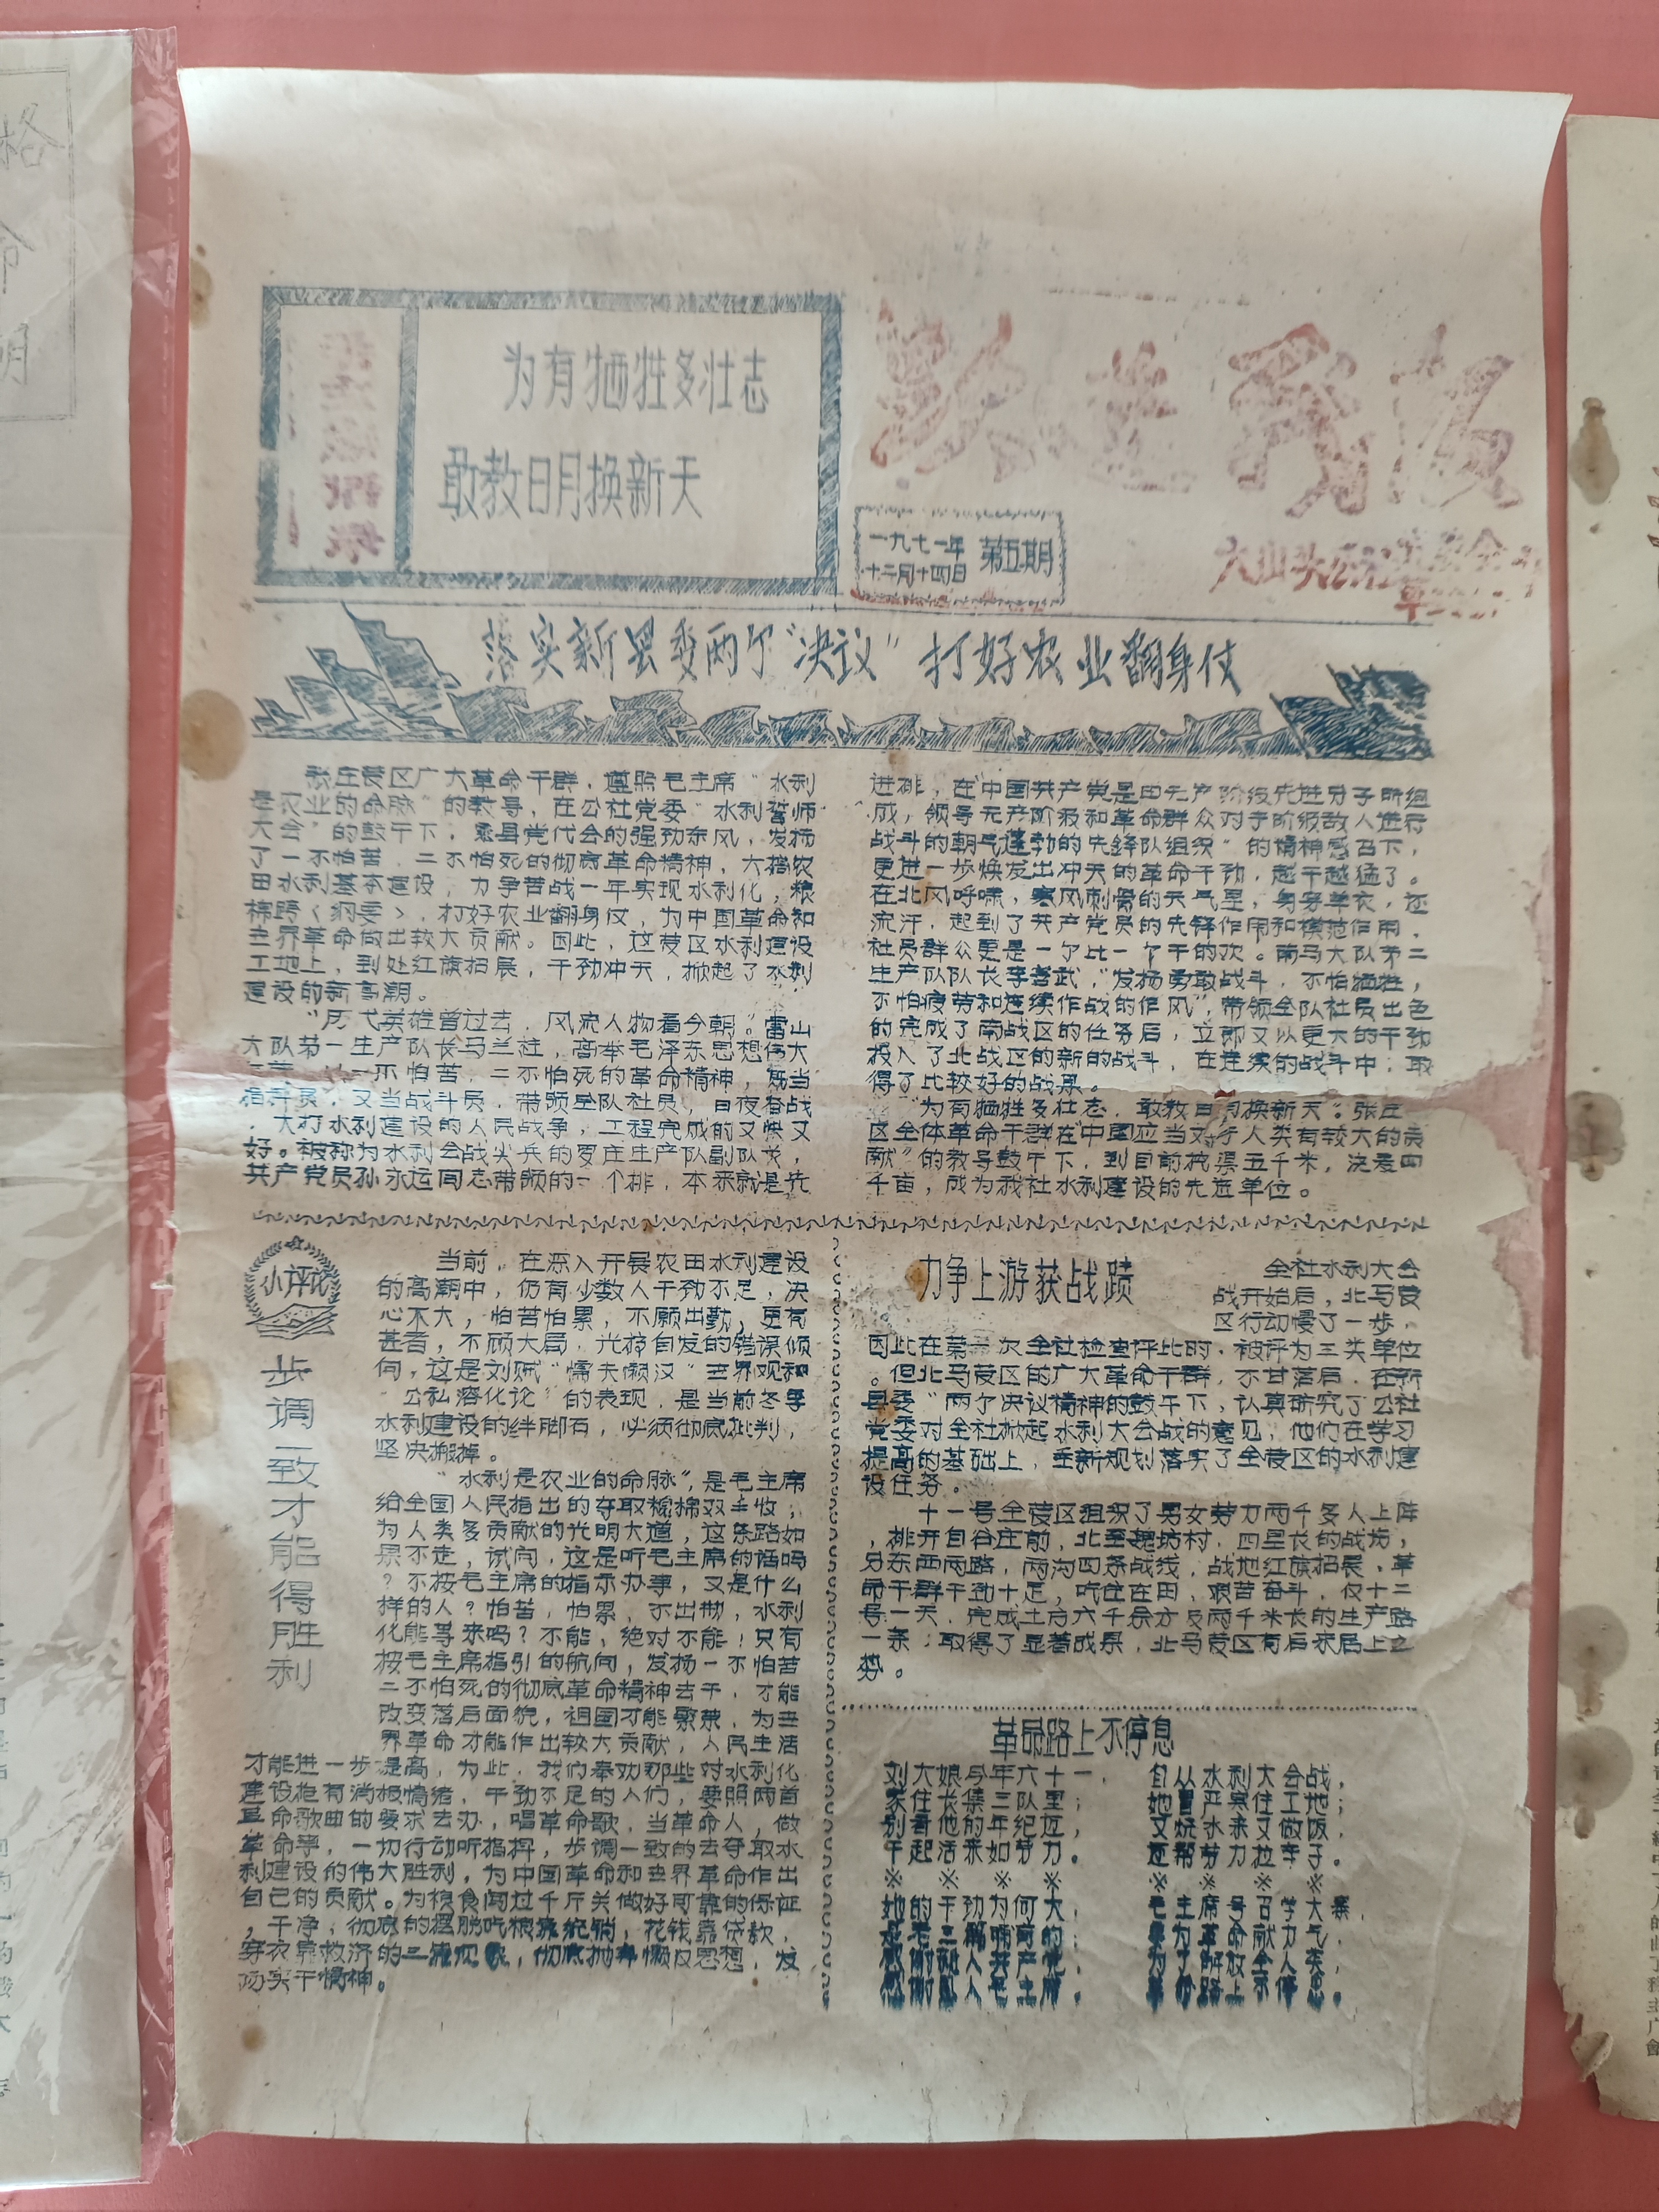 为有牺牲多壮志
敢教日月换新天
跃进战报
一九七一年
十二月十四日
第五期
落实新县委两个“决议”打好农业翻身仗
张庄营区广大革命干群，遵照毛主席“水利
是农业的命脉”的教导，在公社党委“水利誓师
大会”的鼓午下，乘县党代会的强劲东风，发扬
了一不怕苦，二不怕死的彻底革命精神，大搞农
田水利基本建设，力争苦战一年实现水利化，粮
棉跨〈纲要〉，打好农业翻身仗，为中国革命和
世界革命做出较大贡献。因此，这营区水利建设
工地上，到处红旗招展，干劲冲天，掀起了水利
建设的新高潮。
“历代英雄曾过去，风流人物看今朝。”雷山
大队第一生产队长马兰柱，高举毛泽东思想伟大
一不怕苦，二不怕死的革命精神，既当
指挥员，又当战斗员，带领全队社员，日夜奋战
，大打水利建设的人民战争，工程完成的又快又
好。被称为水利会战尖兵的罗庄生产队副队长，
共产党员孙永运同志带领的一个排，本来就是先
进排，在“中国共产党是由无产阶级先进分子所组
成，领导无产阶级和革命群众对于阶级敌人进行
战斗的朝气蓬勃的先锋队组织”的精神感召下，
更进一步焕发出冲天的革命干劲，越干越猛了。
在北风呼啸，寒风刺骨的天气里，身穿单衣，还
流汗，起到了共产党员的先锋作用和模范作用，
社员群众更是一个比一个干的欢。南马大队第二
生产队队长李善武，“发扬勇敢战斗，不怕牺牲，
不怕疲劳和连续作战的作风”，带领全队社员出色
的完成了南战区的任务后，立即又以更大的干劲
投入了北战区的新的战斗，在连续的战斗中，取
得了比较好的战果。
“为有牺牲多壮志，敢教日月换新天”。张庄
区全体革命干群在“中国应当对于人类有较大的贡
献”的教导鼓午下，到目前挖渠五千米，浇麦四
千亩，成为我社水利建设的先进单位。
小评论
步调一致才能得胜利
当前，在深入开展农田水利建设
的高潮中，仍有少数人干劲不足，决
心不大，怕苦怕累，不愿出勤，更有
甚者，不顾大局，光搞自发的错误倾
向，这是刘贼“懦夫懒汉”世界观和
“公私溶化论”的表现，是当前冬季
水利建设的绊脚石，必须彻底批判，
坚决搬掉。
“水利是农业的命脉”，是毛主席
给全国人民指出的夺取粮棉双丰收，
为人类多贡献的光明大道，这条路如
果不走，试问，这是听毛主席的话吗
？不按毛主席的指示办事，又是什么
样的人？怕苦，怕累，不出勤，水利
化能等来吗？不能，绝对不能！只有
按毛主席指引的航向，发扬一不怕苦
二不怕死的彻底革命精神去干，才能
改变落后面貌，祖国才能繁荣，为世
界革命才能作出较大贡献，人民生活
才能进一步提高，为此，我们奉劝那些对水利化
建设抱有消极情绪，干劲不足的人们，要照两首
革命歌曲的要求去办，唱革命歌，当革命人，做
革命事，一切行动听指挥，步调一致的去夺取水
利建设的伟大胜利，为中国革命和世界革命作出
自己的贡献。为粮食闯过千斤关做好可靠的保证
，干净，彻底的摆脱吃粮靠统销，花钱靠贷款，
穿衣靠救济的三靠现象，彻底抛弃懒汉思想，发
扬实干精神。
力争上游获战蹟
全社水利大会
战开始后，北马营
区行动慢了一步，
因此在第一次全社检查评比时，被评为三类单位
。但北马营区的广大革命干群，不甘落后，在新
县委“两个决议精神的鼓午下，认真研究了公社
党委对全社掀起水利大会战的意见，他们在学习
提高的基础上，重新规划落实了全营区的水利建
设任务。
十一号全营区组织了男女劳力两千多人上阵
，排开自谷庄前，北至魏坊村，四里长的战场，
分东西两路，两沟四条战线，战地红旗招展，革
命干群干劲十足，吃住在田，艰苦奋斗，仅十二
号一天，完成土方六千余方及两千米长的生产路
一条，取得了显著成果，北马营区有后来居上之
势。
革命路上不停息
刘大娘今年六十一，
家住长集三队里；
别看他的年纪迈，
干起活来如劳力。
※ ※ ※ ※
她的干劲为何大，
感谢恩人共产党，
感谢恩人毛主席。
自从水利大会战，
她冒严寒住工地；
又烧水来又做饭，
还帮劳力拉车子。
※ ※ ※
毛主席号召学大寨，
要为革命献力气，
为了解放全人类，
革命路上不停息。